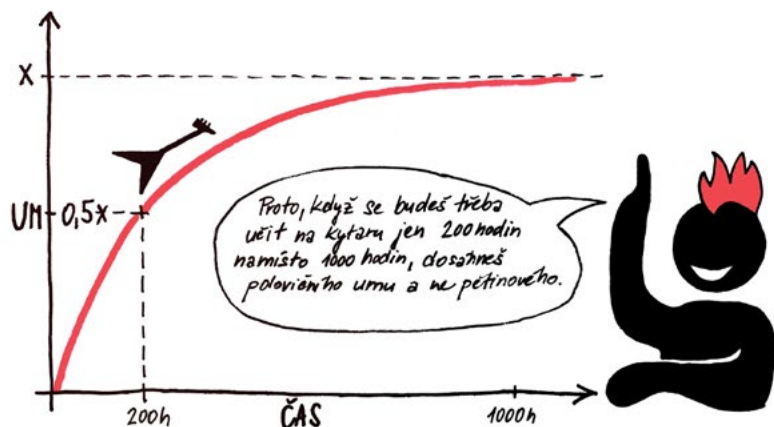 X
UM
0,5x
Proto, když se budeš třeba
učit na kytaru jen 200 hodin
namísto 1000 hodin, dosáhneš
polovičního umu a ne pětinového.
200h
ČAS
1000h